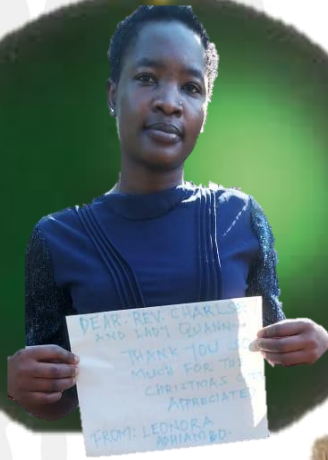 DEAR: REV. CHARLSE
AND LADY QUANN
THANK YOU SO
MUCH FOR THE
CHRISTMAS GIFT
APPRECIATED
FROM: LEONORA
ADHIAMBO.